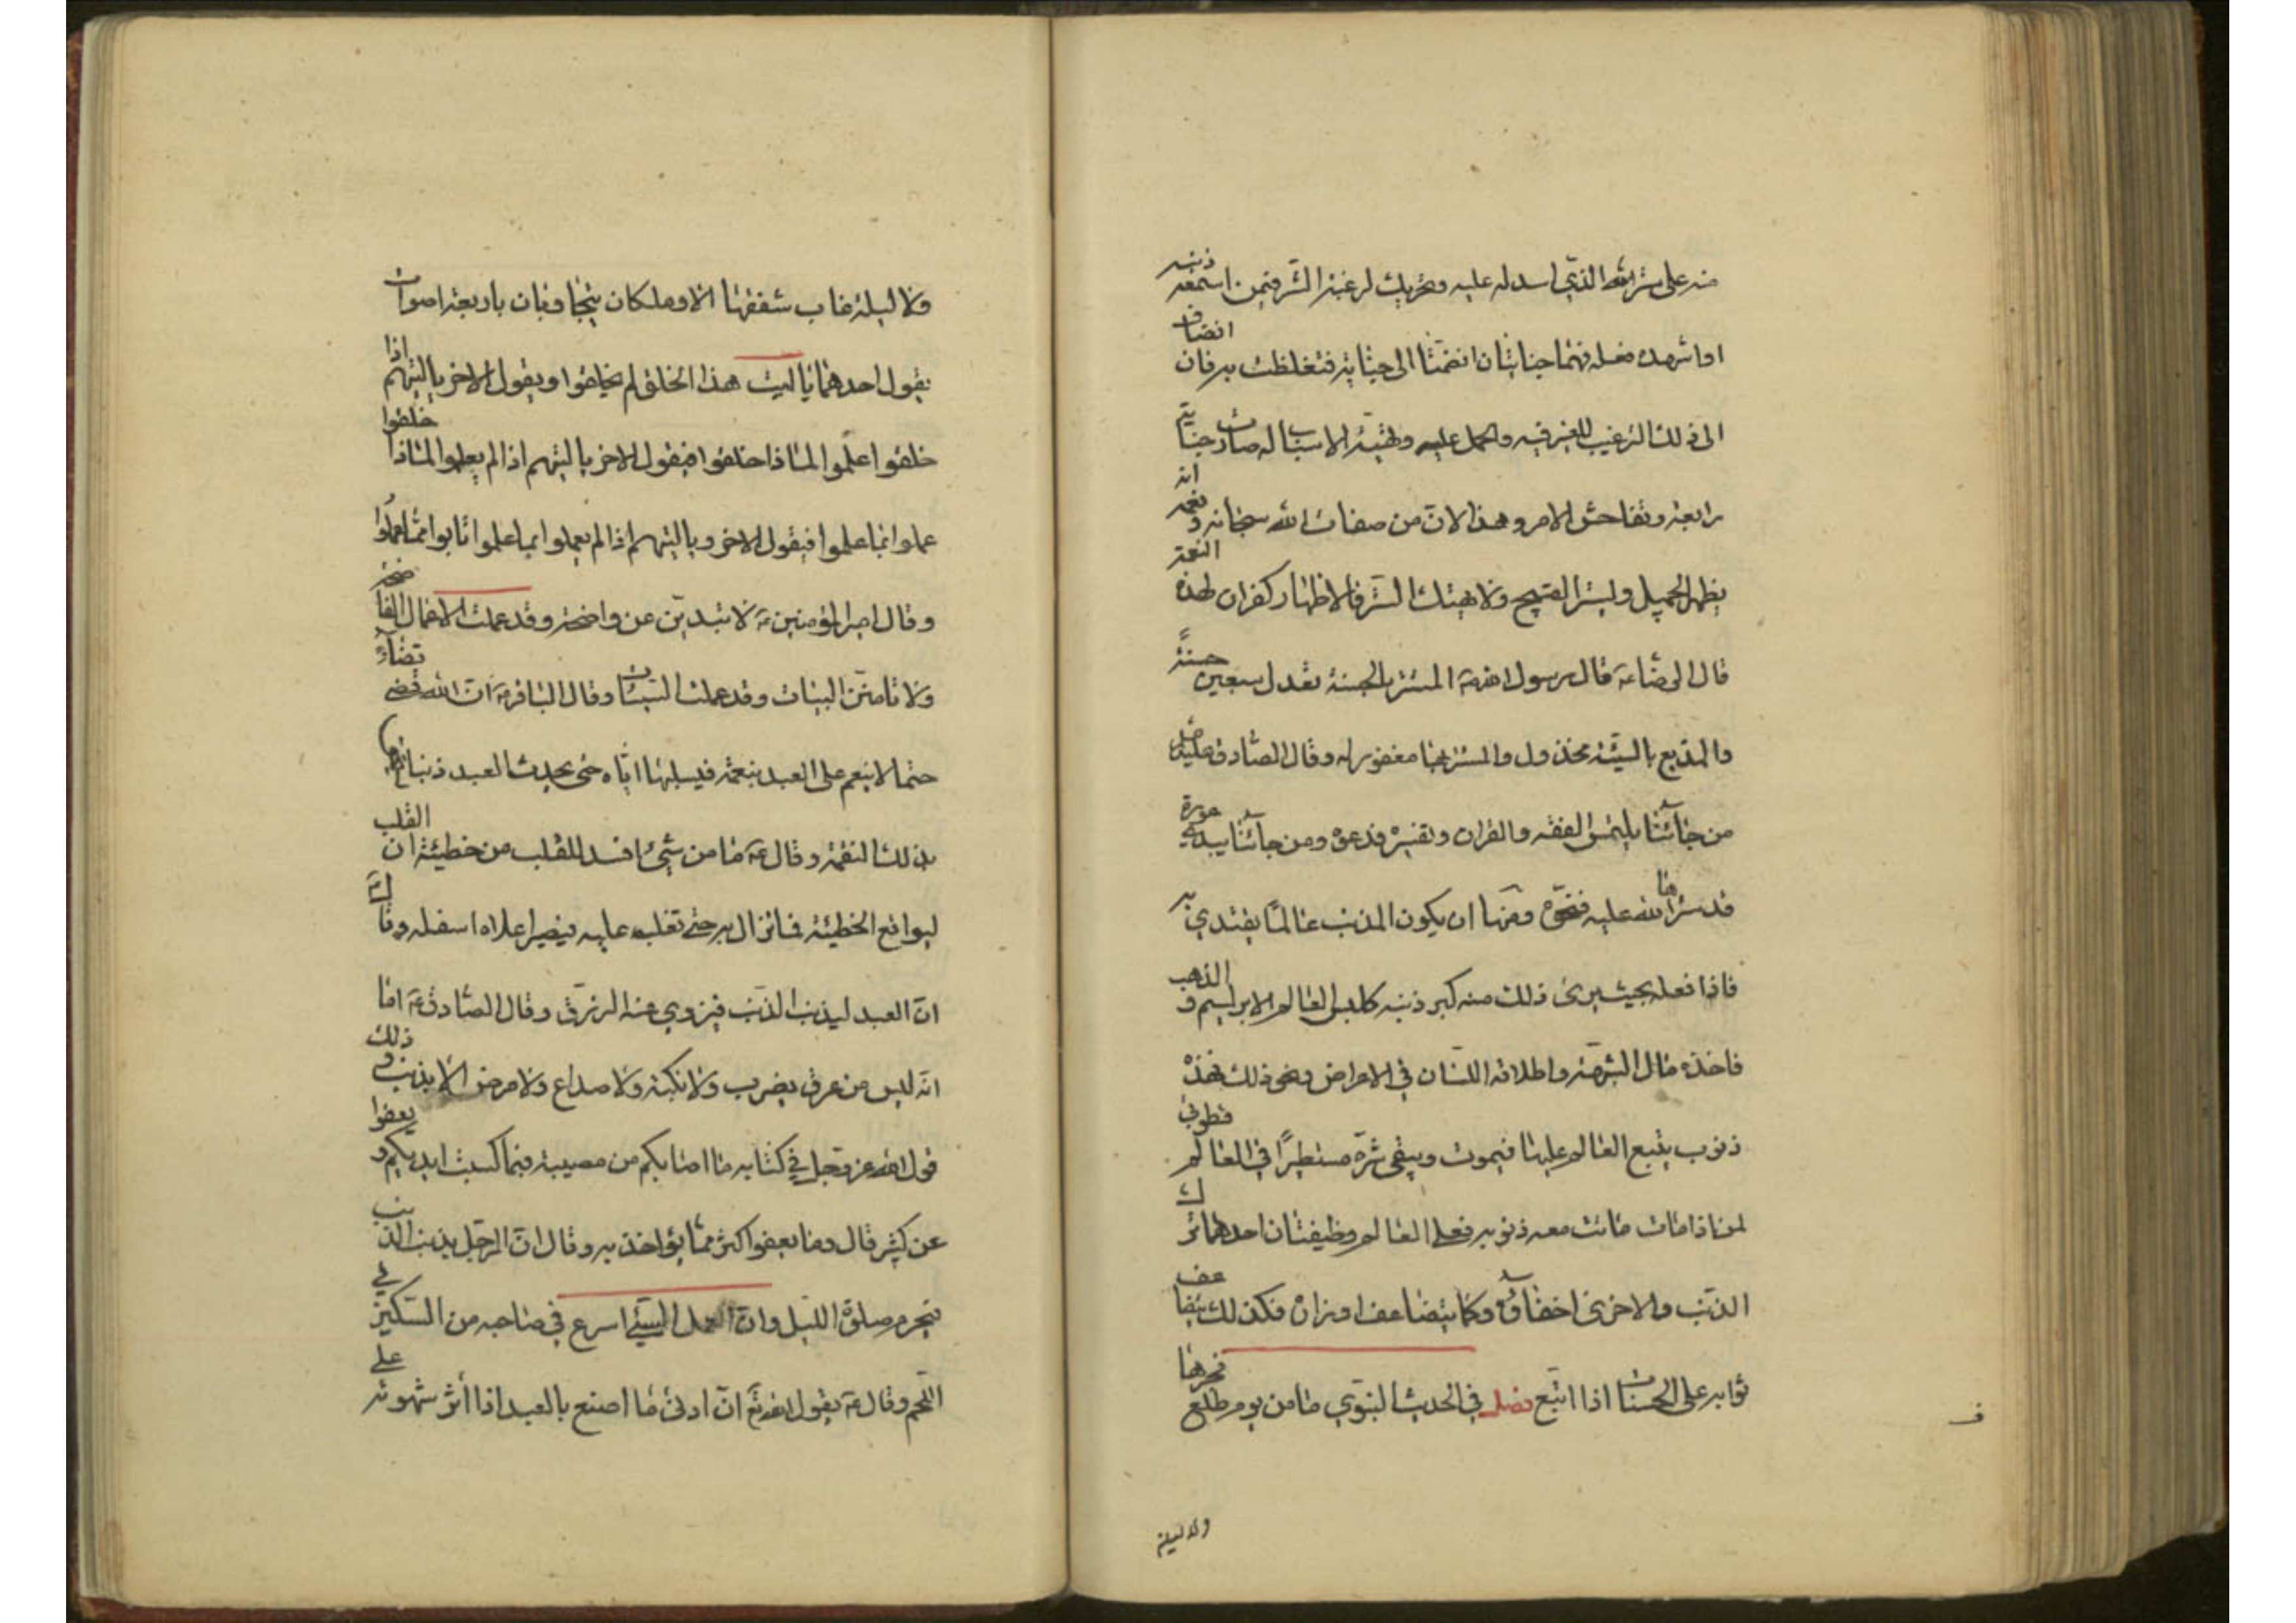 منه على ستر الله الذي اسدله عليه وتحريك لرغبة الشر فيمن اسمعه ذنبه
او اشهده فعله فهما جنايتان انضمتا الى جنايته فتغلظت به فان انضاف
الى ذلك الترغيب للغير فيه والحمل عليه وتهيئة الاسباب له صارت جناية
رابعة وتفاحش الامر وهذا لان من صفات الله سبحانه ونعمه انه
يظهر الجميل ويستر القبيح ولا يهتك الستر فالاظهار كفران لهذه النعمة
قال الرضا ع قال رسول الله ص المستتر بالحسنة تعدل سبعين حسنة
والمذيع بالسيئة مخذول والمستتر بها مغفور له وقال الصادق عليه
من جاءنا يلتمس الفقه والقران وتفسيره فدعوه ومن جاءنا يبدي عورة
قد سترها الله عليه فنحوه ومنها ان يكون المذنب عالما يقتدي به
فاذا فعله بحيث يرى ذلك منه كبر ذنبه كلبس العالم الابريسم و الذهب
فاخذه مال الشبهة واطلاقه اللسان في الاعراض ونحو ذلك فهذه
ذنوب يتبع العالم عليها فيموت ويبقى شره مستطيرا في العالم فطوبى
لمن اذا مات ماتت معه ذنوبه فعلى العالم وظيفتان احدهما ترك
الذنب والاخرى اخفاؤه وكما يتضاعف اوزاره فكذلك يتضاعف
ثوابه على الحسنات اذا اتبع فصل في الحديث النبوي ما من يوم طلع فجرها
ولا ليلة
ولا ليلة غاب شفقها الا وملكان يتجاوبان باربعة اصوات
يقول احدهما يا ليت هذا الخلق لم يخلقوا ويقول الاخر يا ليتهم اذا
خلقوا علموا لماذا خلقوا فيقول الاخر يا ليتهم اذا لم يعلموا لماذا خلقوا
عملوا بما علموا فيقول الاخر ويا ليتهم اذا لم يعملوا بما علموا تابوا مما عملوا
وقال امير المؤمنين ع لا تبدين عن واضحة وقد عملت الاعمال الفاضحة
ولا تامنن البيات وقد عملت السيئات وقال الباقر ع ان الله قضى قضاء
حتما لا ينعم على العبد بنعمة فيسلبها اياه حتى يحدث العبد ذنبا
بذلك النقمة وقال ع ما من شيء افسد للقلب من خطيئة ان القلب
ليواقع الخطيئة فما تزال به حتى تغلب عليه فيصير اعلاه اسفله وقال ع
ان العبد ليذنب الذنب فيزوي عنه الرزق وقال الصادق ع اما
انه ليس من عرق يضرب ولا نكبة ولا صداع ولا مرض الا بذنب و ذلك
قول الله عز وجل في كتابه ما اصابكم من مصيبة فبما كسبت ايديكم و يعفوا
عن كثير قال وما يعفوا اكثر مما يؤاخذ به وقال ان الرجل يذنب الذنب
فيحرم صلوة الليل وان العمل السيئ اسرع في صاحبه من السكين في
اللحم وقال ع يقول الله تع ان ادنى ما اصنع بالعبد اذا اثر شهوته على